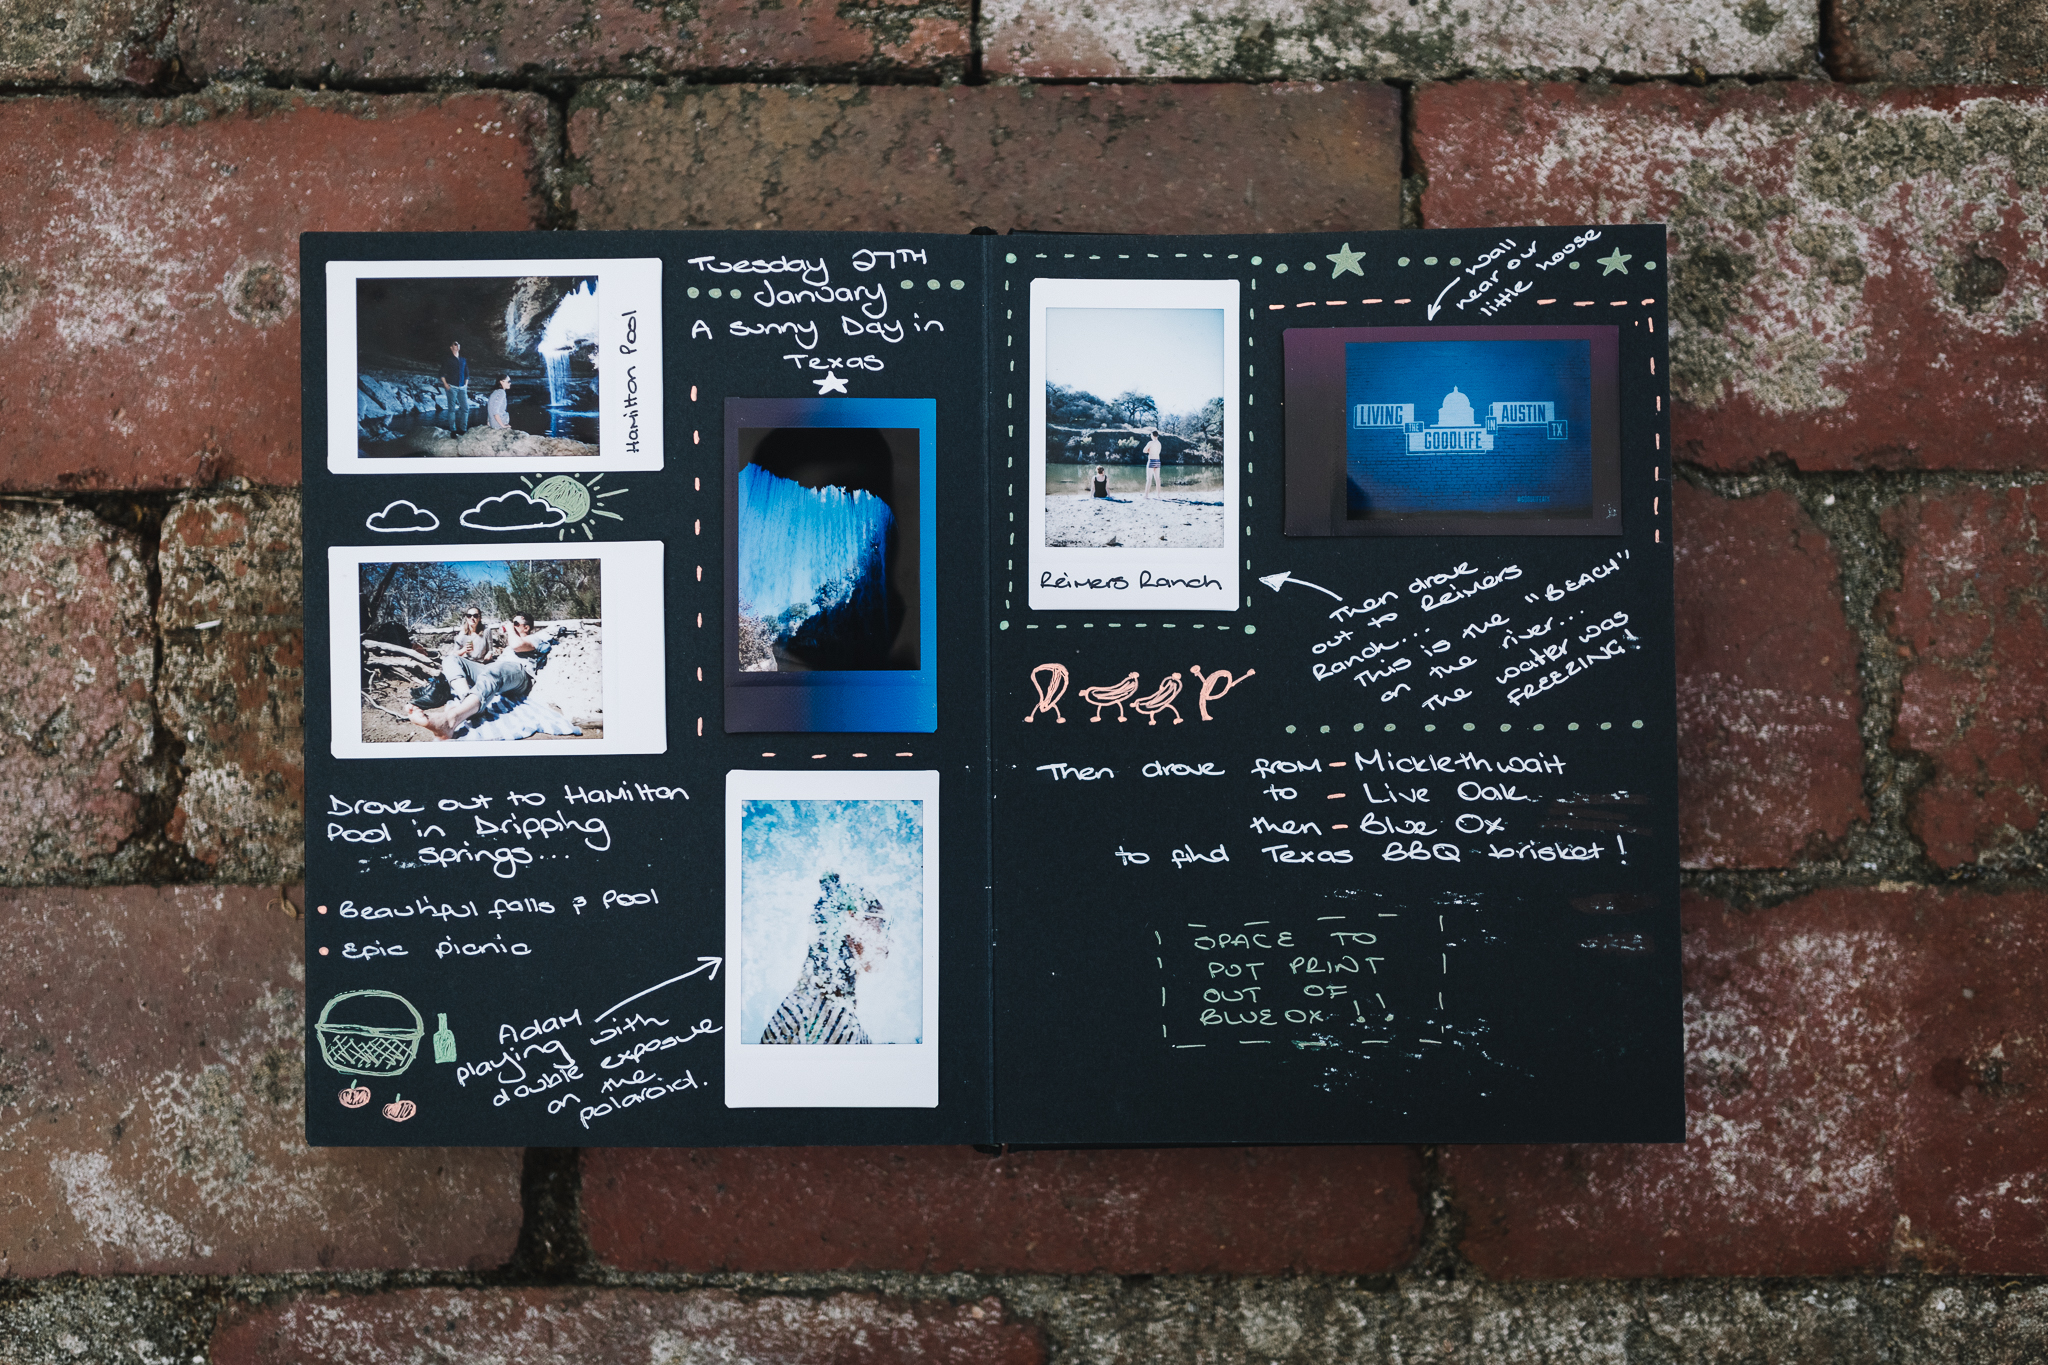 Tuesday 27TH
January
A Sunny Day in
Texas
Hamilton Pool
Drove out to Hamilton
Pool in Dripping
springs...
Beautiful falls & Pool
Epic picnic
Adam
playing with
double exposure
on the
polaroid.
Reimers Ranch
wall
near our
little house
LIVING
THE
GOODLIFE
IN
AUSTIN
TX
Then drove
out to Reimers
Ranch...
This is the "BEACH"
on the river...
The water was
FREEZING!
Then drove from - Micklethwait
to - Live Oak
then - Blue Ox
to find Texas BBQ brisket!
SPACE TO
PUT PRINT
OUT OF
BLUE OX!!